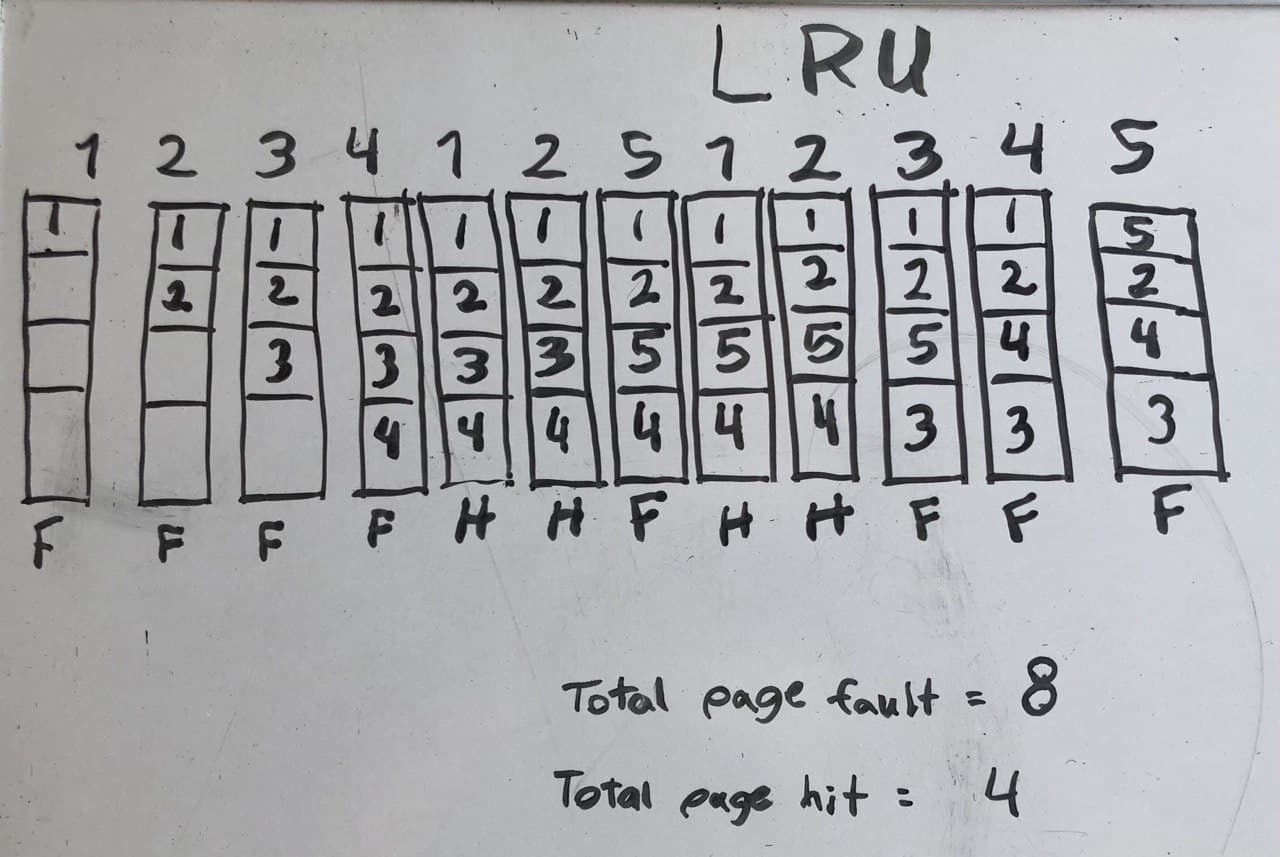 LRU
1 2 3 4 1 2 5 1 2 3 4 5
1 1 1 1 1 1 1 1 1 1 1 5
2 2 2 2 2 2 2 2 2 2 2
3 3 3 3 5 5 5 5 4 4
4 4 4 4 4 4 3 3 3
F F F F H H F H H F F F
Total page fault = 8
Total page hit = 4